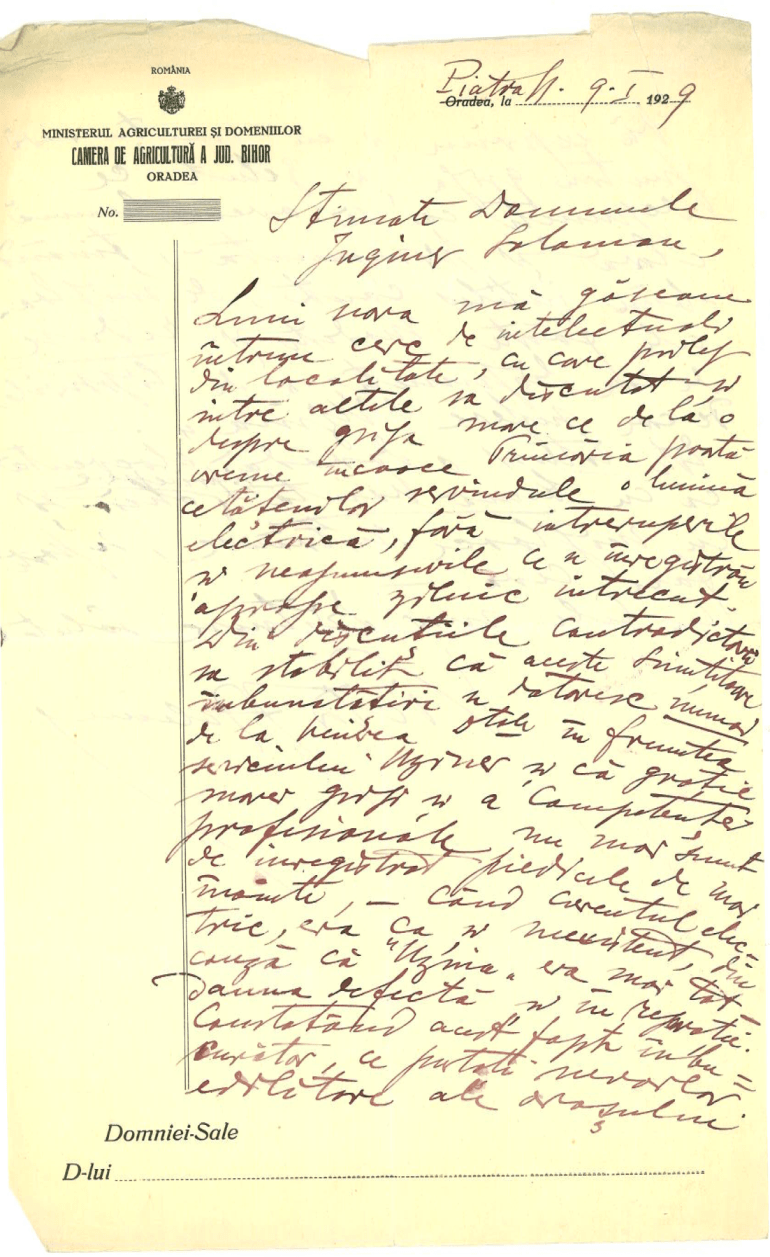 ROMÂNIA
MINISTERUL AGRICULTUREI ȘI DOMENIILOR
CAMERA DE AGRICULTURĂ A JUD. BIHOR
ORADEA
No.
Piatra N. 9. I 1929
Oradea, la
Stimate Domnule
Inginer Solomon,
Luni seara mă găseam
întrun cerc de intelectuali
din localitate, cu care prilej
intre altele sa discutat și
despre grija mare ce de la o
vreme încoace Primăria poartă
cetățenilor servindule o lumină
electrică, fără intreruperile
și neajunsurile ce se înregistrau
aproape zilnic intrecut.
Din discuțiile contradictorii
sa stabilit că aceste simțitoare
imbunatatiri se datoresc numai
de la venirea Dtale în fruntea
serviciului Uzinei și că grație
marei griji și a competenței
profesionale nu mai sunt
de inregistrat piedicile de mai
înainte, – când curentul elec-
tric, era ca și neexistent, din
cauză că "Uzina" era mai tot
dauna defectă și în reparație.
Constatând acest fapt înbu=
curător, ce purtați nevoilor
edilitare ale orașului
Domniei-Sale
D-lui